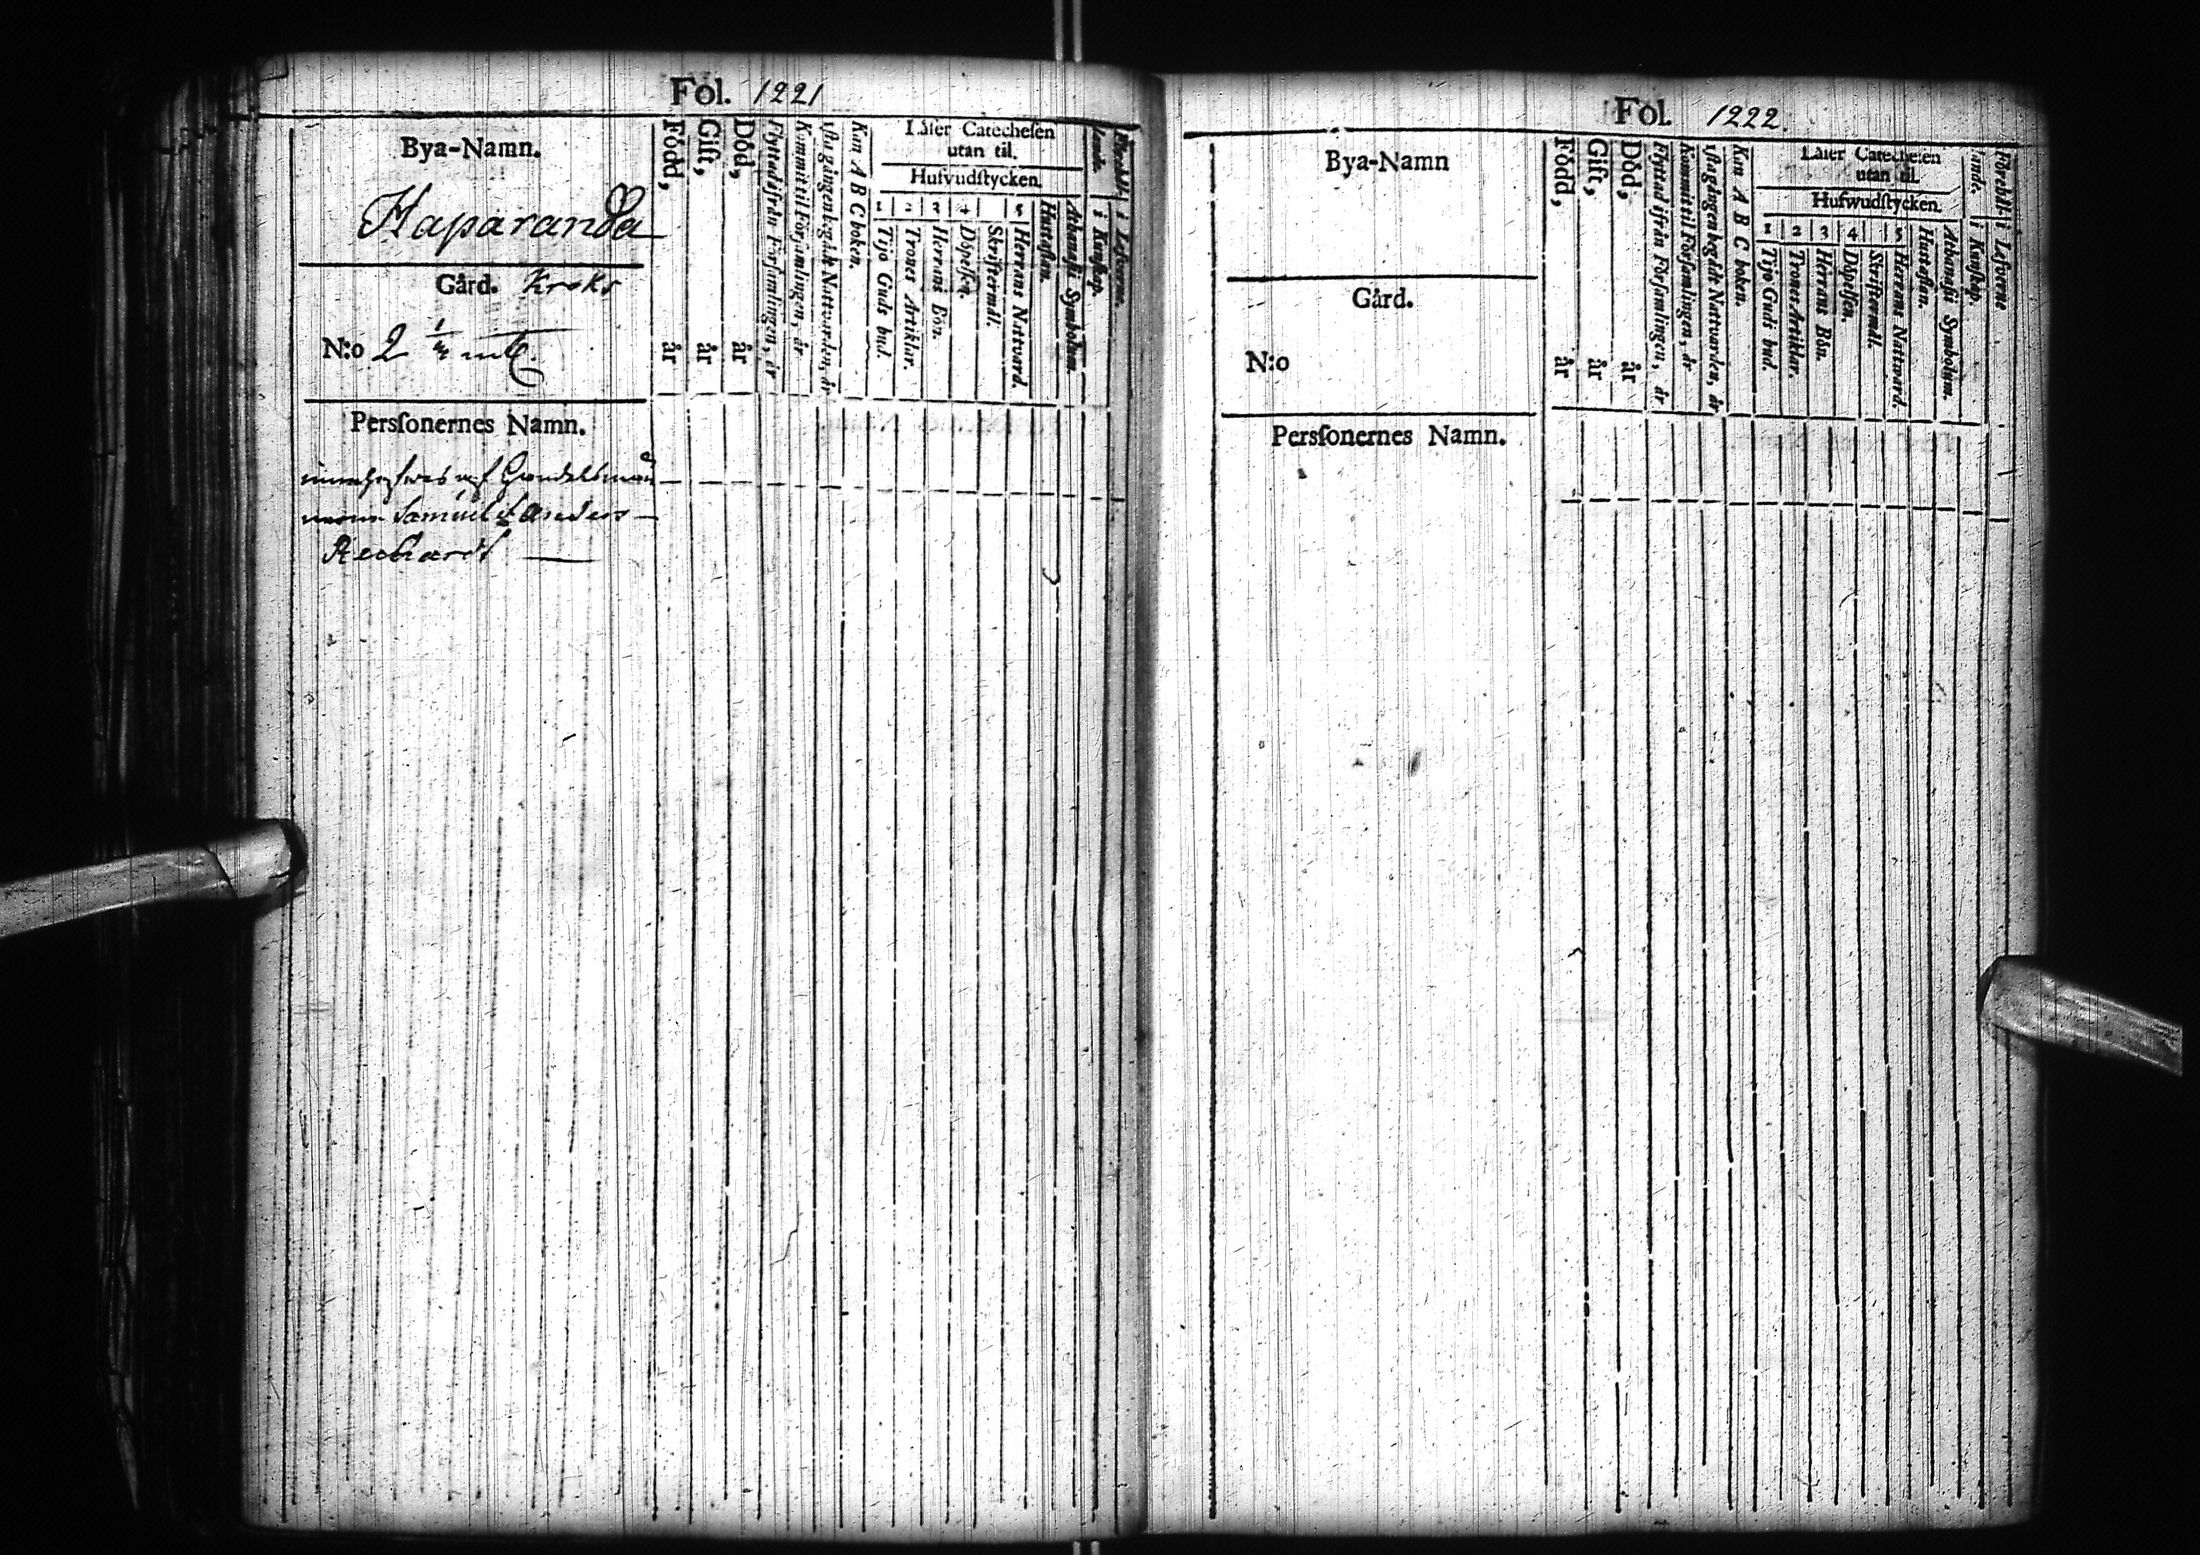 Fol. 1221
Bya-Namn.
Haparanda
Gård. Kroks
N:o 2 1/4 mtl.
Född, år
Gift, år
Död, år
Flyttad ifrån Församlingen, år
Kommit til Församlingen, år
1sta gången begådt Nattvarden, år
Kan A B C boken.
Läser Catechesen
utan til.
Hufvudstycken.
1 Tijo Guds bud.
2 Trones Artiklar.
3 Herrans Bön.
4 Döpelsen.
Skriftermål.
5 Herrans Nattvard.
Hustaflan.
Athanasii Symbolum.
i Kunskap.
i Lefverne.
Perſonernes Namn.
Samuel & Anders
Rechardt
Fol. 1222.
Bya-Namn
Gård.
N:o
Född, år
Gift, år
Död, år
Flyttad ifrån Församlingen, år
Kommit til Församlingen, år
1sta gången begådt Nattvarden, år
Kan A B C boken.
Läser Catechesen
utan til.
Hufwudstycken.
1 Tijo Guds bud.
2 Trones Artiklar.
3 Herrans Bön.
4 Döpelsen.
Skriftermål.
5 Herrans Nattward.
Hustaflan.
Athanasii Symbolum.
Förehållande,
i Kunskap.
i Lefverne
Perſonernes Namn.